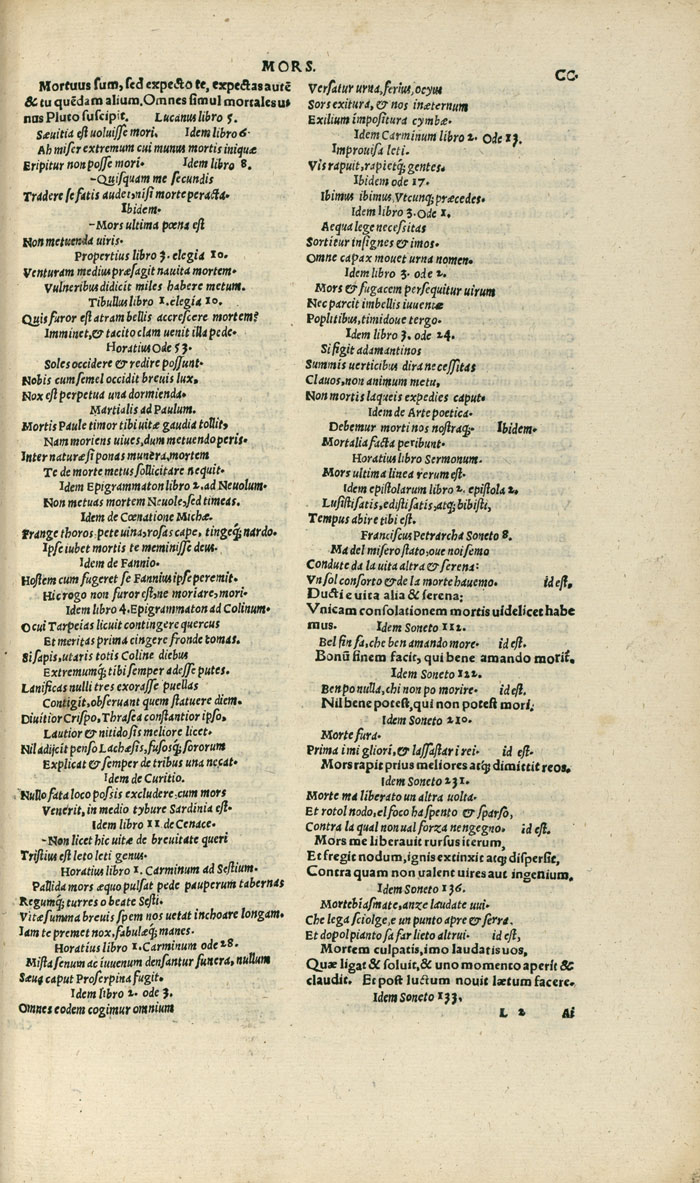 MORS.
CC.
Mortuus sum, sed expecto te, expectas autē
& tu quēdam alium. Omnes simul mortales u⸗
nus Pluto suscipit. Lucanus libro 5.
Sæuitia est uoluisse mori. Idem libro 6.
Ah miser extremum cui munus mortis iniquæ
Eripitur non posse mori. Idem libro 8.
-Quisquam me secundis
Tradere se fatis audet, nisi morte peracta.
Ibidem.
-Mors ultima pœna est
Non metuenda uiris.
Propertius libro 3. elegia 10.
Venturam medius præsagit nauita mortem.
Vulneribus didicit miles habere metum.
Tibullus libro 1. elegia 10.
Quis furor est atram bellis accrescere mortem?
Imminet, & tacito clam uenit illa pede.
Horatius Ode 53.
Soles occidere & redire possunt.
Nobis cum semel occidit breuis lux,
Nox est perpetua una dormienda.
Martialis ad Paulum.
Mortis Paule timor tibi uitæ gaudia tollit,
Nam moriens uiues, dum metuendo peris.
Inter naturæ si ponas munera, mortem
Te de morte metus sollicitare nequit.
Idem Epigrammaton libro 2. ad Neuolum.
Non metuas mortem Neuole, sed timeas.
Idem de Cœnatione Michæ.
Frange thoros, pete uina, rosas cape, tingeq; nardo.
Ipse iubet mortis te meminisse deus.
Idem de Fannio.
Hostem cum fugeret se Fannius ipse peremit.
Hic rogo non furor est, ne moriare, mori.
Idem libro 4. Epigrammaton ad Colinum.
O cui Tarpeias licuit contingere quercus
Et meritas prima cingere fronde comas.
Si sapis, utaris totis Coline diebus
Extremumq; tibi semper adesse putes.
Lanificas nulli tres exorasse puellas
Contigit, obseruant quem statuere diem.
Diuitior Crispo, Thrasea constantior ipso,
Lautior & nitidosis meliore licet.
Nil adijcit penso Lachæsis, fusosq; sororum
Explicat & semper de tribus una necat.
Idem de Curitio.
Nullo fata loco possis excludere, cum mors
Venerit, in medio tybure Sardinia est.
Idem libro 11 de Cenace.
-Non licet hic uitæ de breuitate queri
Tristius est leto leti genus.
Horatius libro 1. Carminum ad Sestium.
Pallida mors æquo pulsat pede pauperum tabernas
Regumq; turres o beate Sesti.
Vitæ summa breuis spem nos uetat inchoare longam.
Iam te premet nox, fabulæq; manes.
Horatius libro 1. Carminum ode 28.
Mista senum ac iuuenum densantur funera, nullum
Sæua caput Proserpina fugit.
Idem libro 2. ode 3.
Omnes eodem cogimur omnium
Versatur urna, serius, ocyus
Sors exitura, & nos inæternum
Exilium impositura cymbæ.
Idem Carminum libro 2. Ode 13.
Improuisa leti.
Vis rapuit, rapietq; gentes.
Ibidem ode 17.
Ibimus ibimus, Vtcunq; præcedes.
Idem libro 3. Ode 1.
Aequa lege necessitas
Sortitur insignes & imos.
Omne capax mouet urna nomen.
Idem libro 3. ode 2.
Mors & fugacem persequitur uirum
Nec parcit imbellis iuuentæ
Poplitibus, timidoue tergo.
Idem libro 3. ode 24.
Si figit adamantinos
Summis uerticibus dira necessitas
Clauos, non animum metu,
Non mortis laqueis expedies caput.
Idem de Arte poetica.
Debemur morti nos nostraq;. Ibidem.
Mortalia facta peribunt.
Horatius libro Sermonum.
Mors ultima linea rerum est.
Idem epistolarum libro 2. epistola 2.
Lusisti satis, edisti satis, atq; bibisti,
Tempus abire tibi est.
Franciscus Petrarcha Soneto 8.
Ma del misero stato, oue noi semo
Condute da la uita altra & serena:
Vn sol conforto & de la morte hauemo. id est,
Ducti e uita alia & serena:
Vnicam consolationem mortis uidelicet habe
mus. Idem Soneto 112.
Bel fin fa, che ben amando more. id est.
Bonū finem facit, qui bene amando morit̄.
Idem Soneto 122.
Ben po nulla, chi non po morire. id est.
Nil bene potest, qui non potest mori.
Idem Soneto 210.
Morte fura.
Prima i mi gliori, & lassa star i rei. id est.
Mors rapit prius meliores atq; dimittit reos.
Idem Soneto 231.
Morte ma liberato un altra uolta.
Et rotol nodo, el foco ha spento & sparso,
Contra la qual non ual forza nengegno. id est.
Mors me liberauit rursus iterum,
Et fregit nodum, ignis extinxit atq; dispersit,
Contra quam non ualent uires aut ingenium.
Idem Soneto 136.
Morte biasmate, anze laudate uui.
Che lega sciolge, e un punto apre & serra.
Et dopol pianto sa far lieto altrui. id est,
Mortem culpatis, imo laudatis uos,
Quæ ligat & soluit, & uno momento aperit &
claudit. Et post luctum nouit lætum facere.
Idem Soneto 133.
L 2 Ai